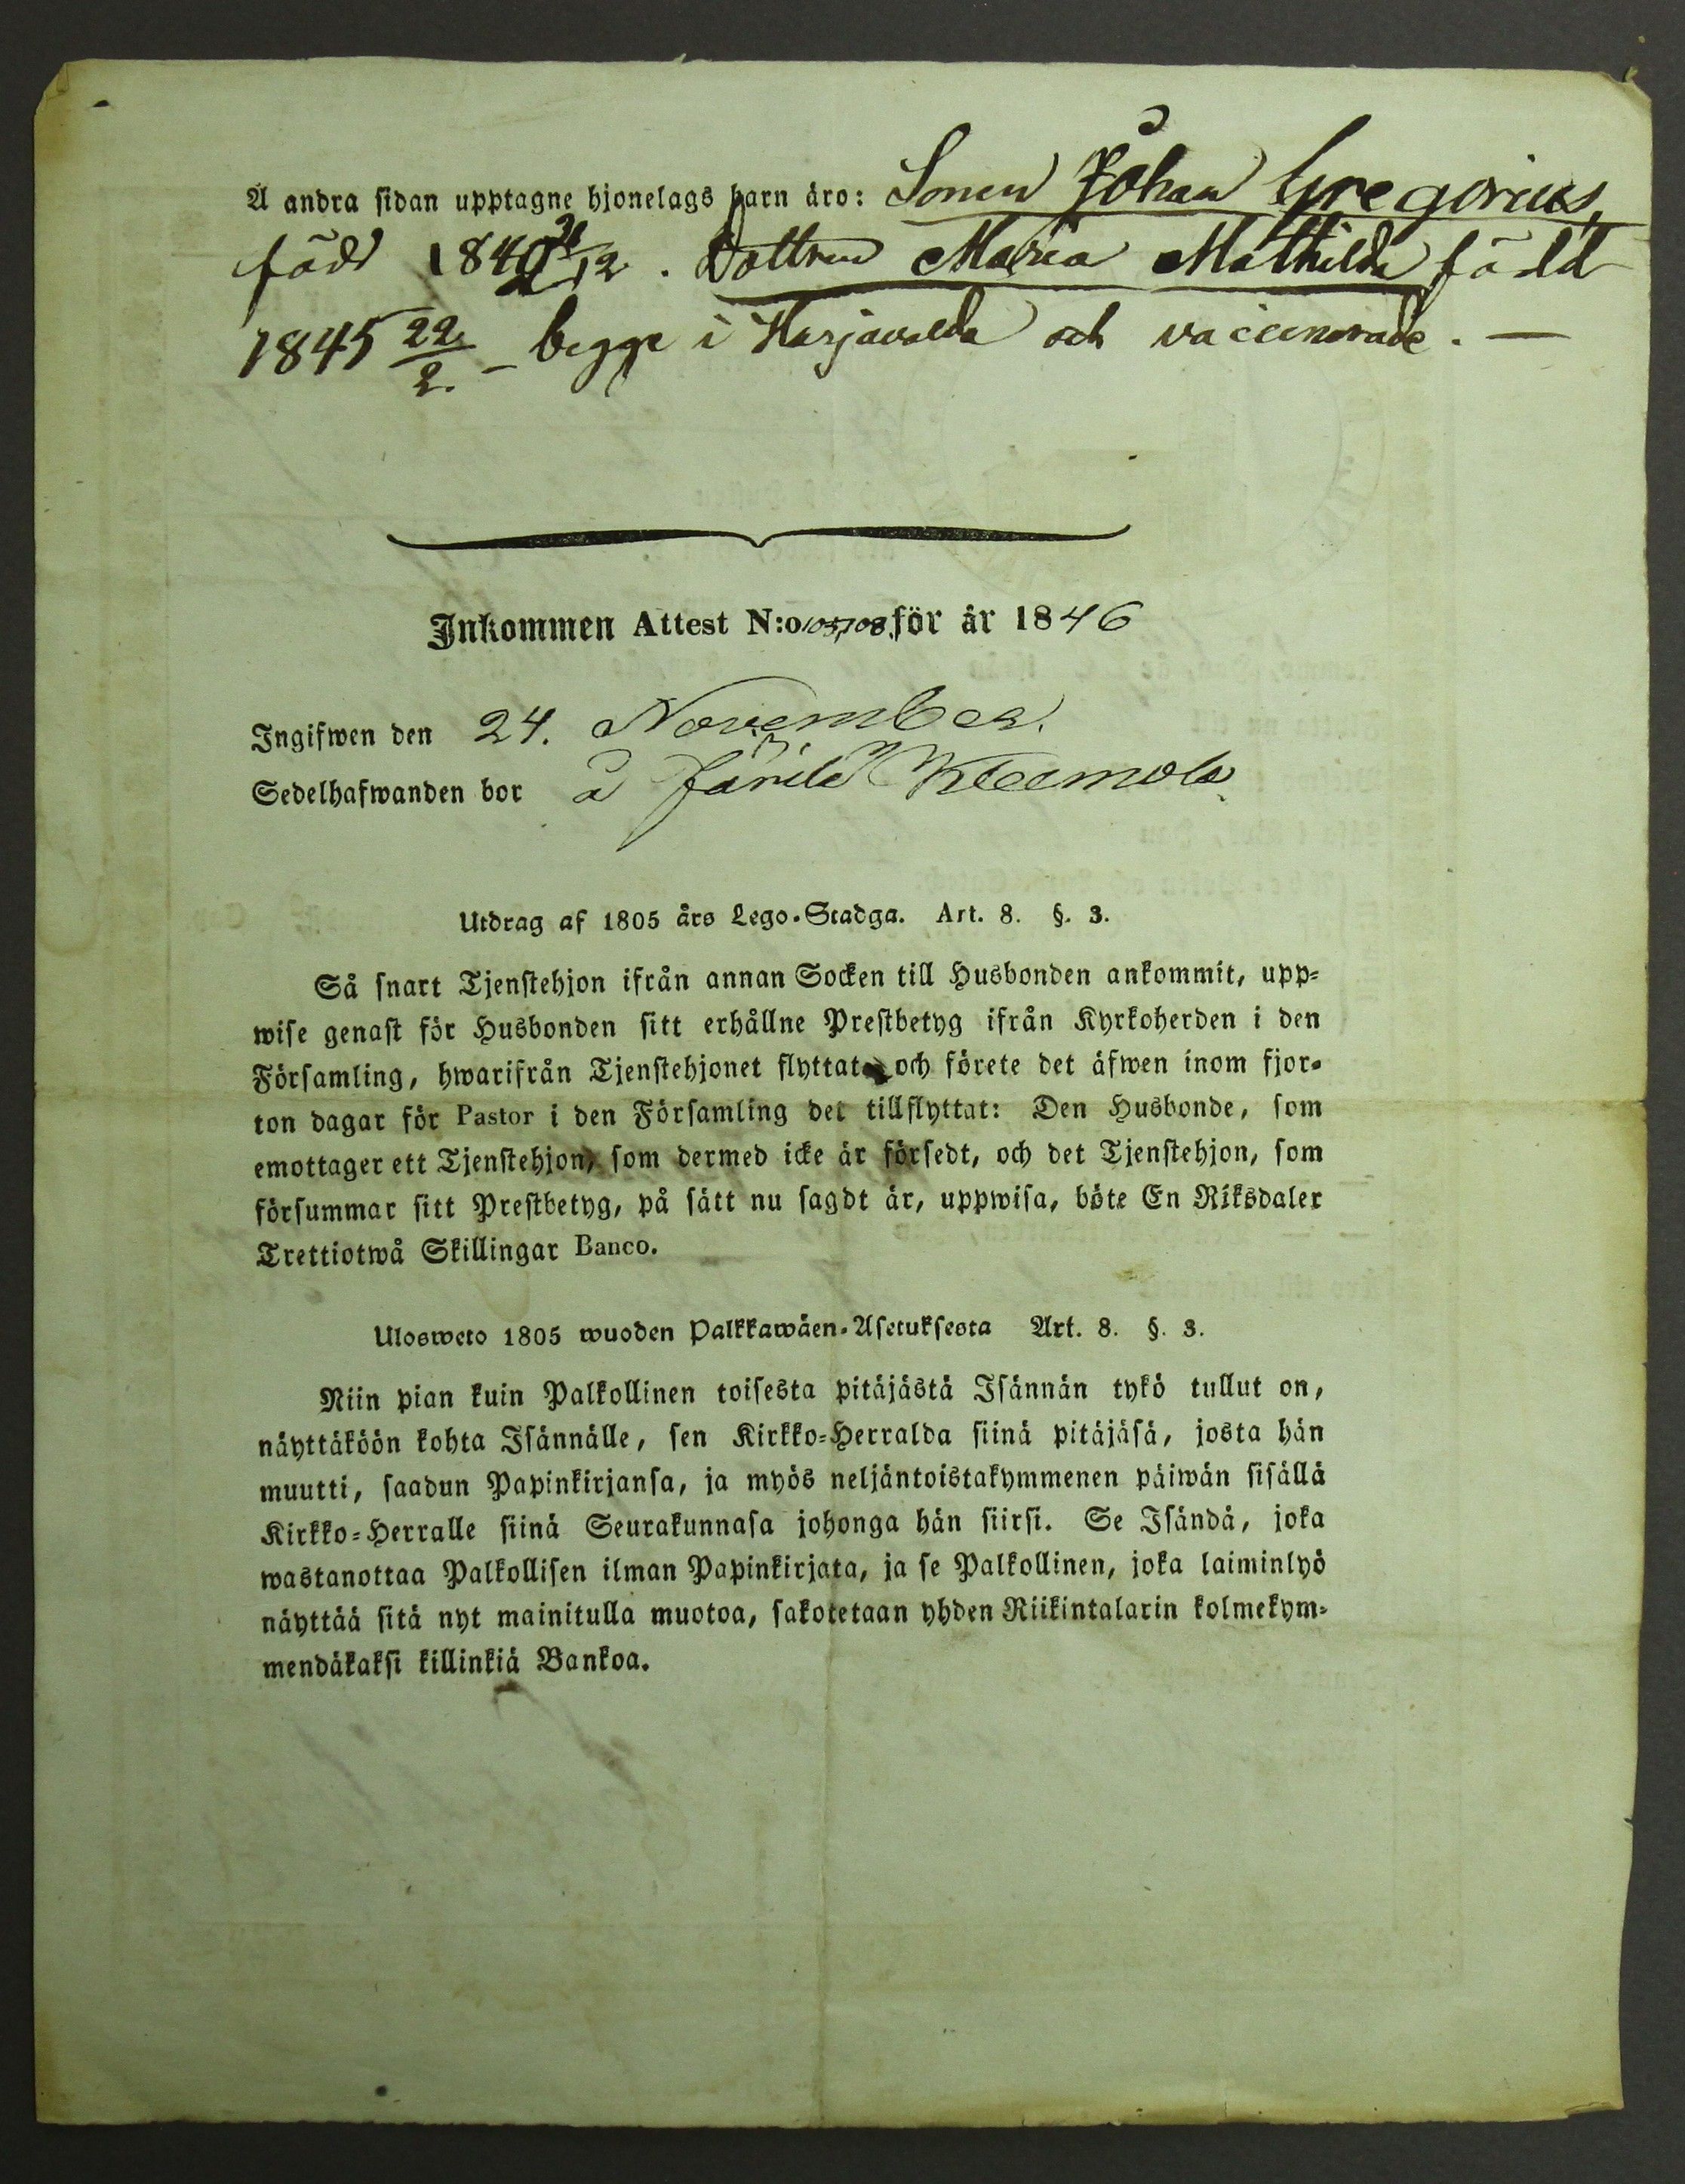 Å andra sidan upptagne hjonelags barn äro: Sonen Johan Gregorius,
född 1840 21/12. Dottren Maria Mathilda född
1845 22/2. - begge i Harjavalda och vaccinerade. —
Inkommen Attest N:o 105,108. för år 1846
Ingifwen den 24. November.
Sedelhafwanden bor å Järilä Kleemola
Utdrag af 1805 års Lego-Stadga. Art. 8. §. 3.
Så snart Tjenstehjon ifrån annan Socken till Husbonden ankommit, upp-
wise genast för Husbonden sitt erhållne Prestbetyg ifrån Kyrkoherden i den
Församling, hwarifrån Tjenstehjonet flyttat och förete det äfwen inom fjor-
ton dagar för Pastor i den Församling det tillflyttat: Den Husbonde, som
emottager ett Tjenstehjon, som dermed icke är försedt, och det Tjenstehjon, som
försummar sitt Prestbetyg, på sätt nu sagdt är, uppwisa, böte En Riksdaler
Trettiotwå Skillingar Banco.
Ulosweto 1805 wuoden Palkkawäen-Asetuksesta Art. 8. §. 3.
Niin pian kuin Palkollinen toisesta pitäjästä Isännän tykö tullut on,
näyttäköön kohta Isännälle, sen Kirkko-Herralda siinä pitäjäsä, josta hän
muutti, saadun Papinkirjansa, ja myös neljäntoistakymmenen päiwän sisällä
Kirkko-Herralle siinä Seurakunnasa johonga hän siirsi. Se Isändä, joka
wastanottaa Palkollisen ilman Papinkirjata, ja se Palkollinen, joka laiminlyö
näyttää sitä nyt mainitulla muotoa, sakotetaan yhden Riikintalarin kolmekym-
mendäkaksi killinkiä Bankoa.